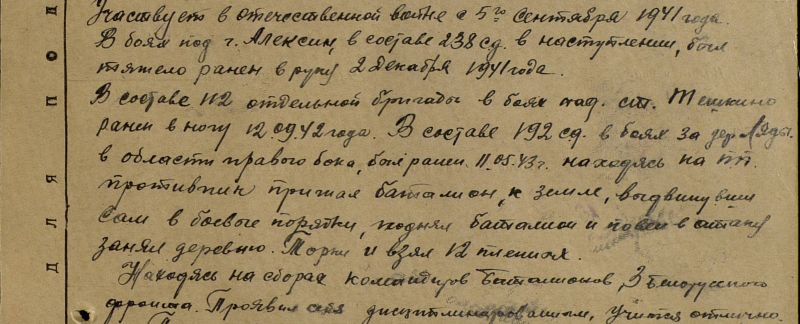 Участвует в отечественной войне с 5го сентября 1941 года.
В боях под г. Алексин, в составе 238 сд. в наступлении, был
тяжело ранен в руку 2 декабря 1941 года.
В составе 112 отдельной бригады в боях под. ст.
ранен в ногу 12.09.42 года. В составе 192 сд. в боях за дер. Ляды.
в области правого бока, был ранен 11.05.43 г. находясь на
противник прижал батальон, к земле, выдвинувшись
сам в боевые порядки, поднял батальон и повел в атаку
занял деревню. и взял 12 пленных.
Находясь на сборах командиров батальонов, 3 Белорусского
фронта. Проявил себя дисциплинированным, учится отлично.
ДЛЯ ПОД